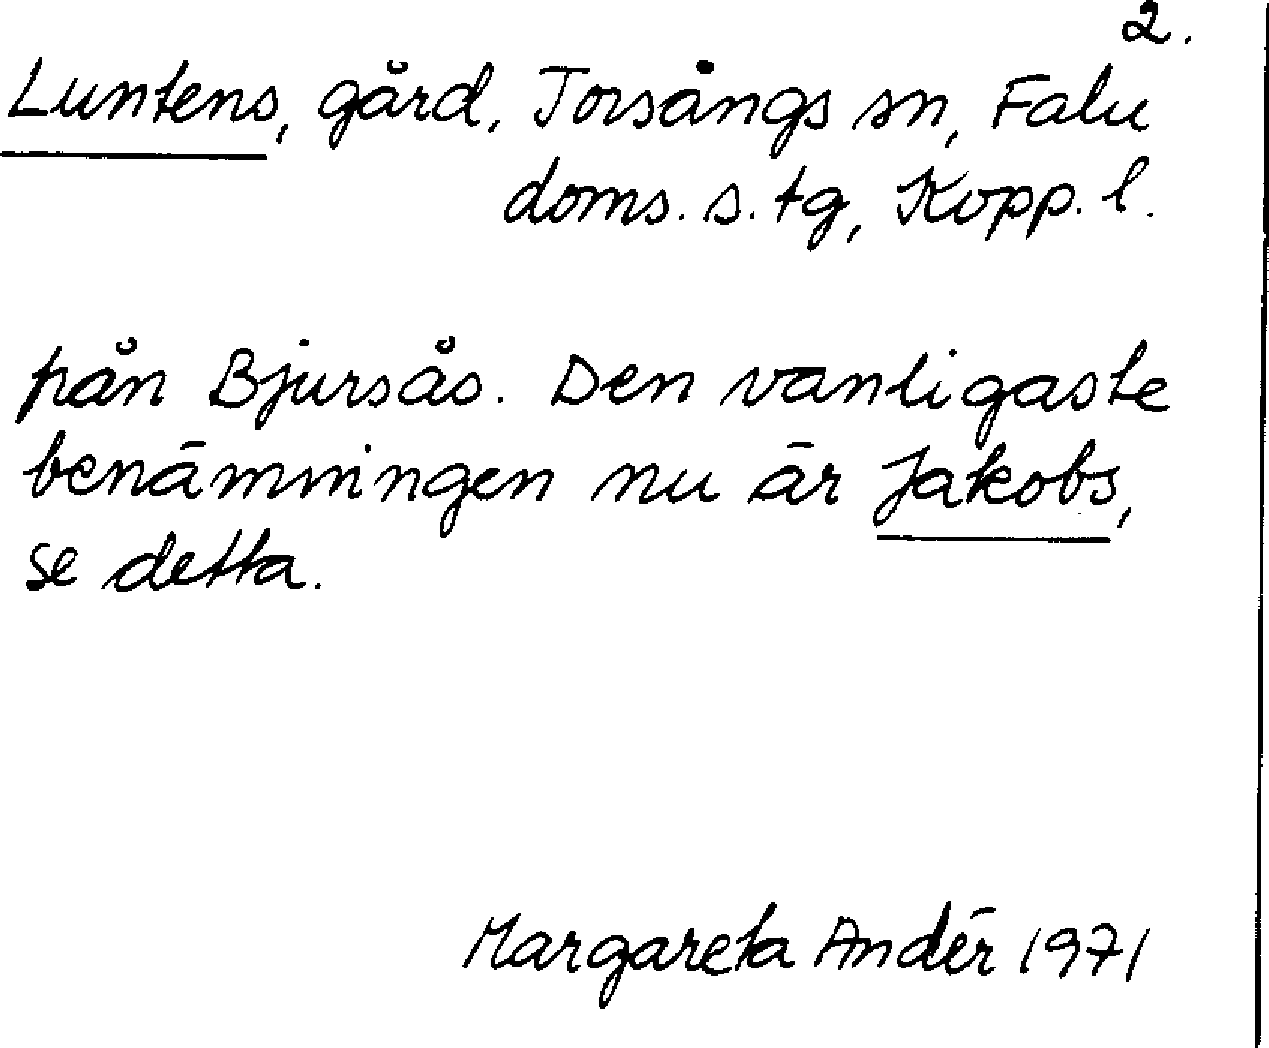 2.
Luntens, gård, Torsångs sn, Falu
doms. s. tg, Kopp. l.
från Bjursås. Den vanligaste
benämningen nu är Jakobs,
se detta.
Margareta Andér 1971